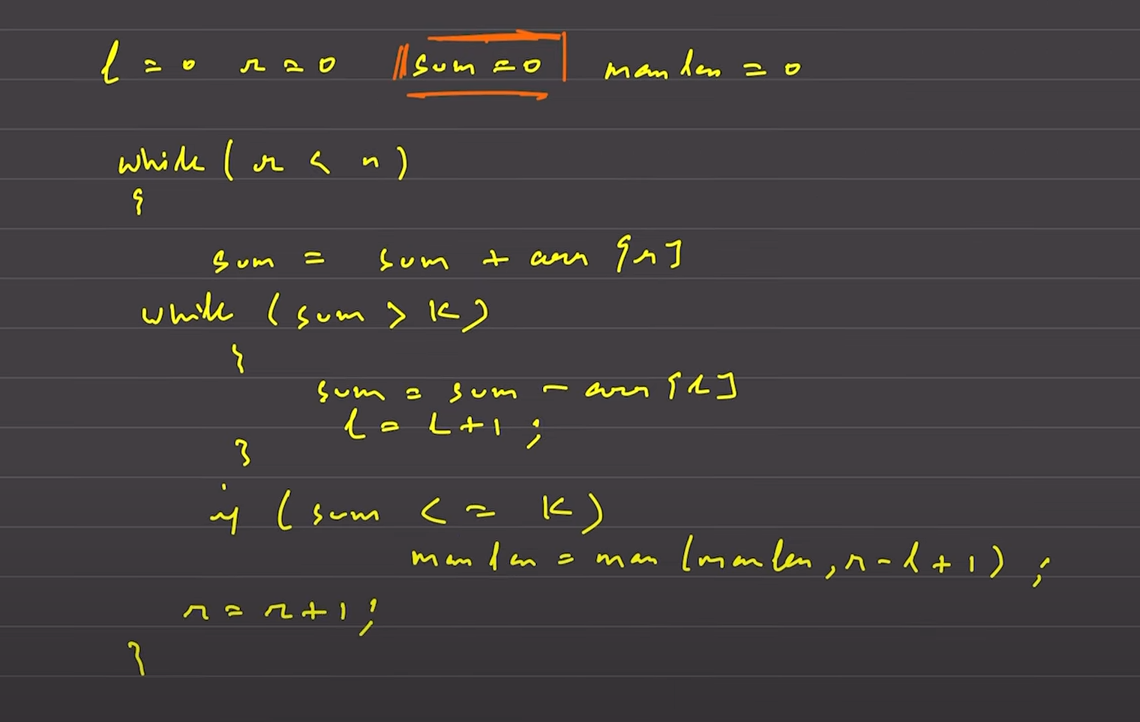 l = 0 r = 0 sum = 0 maxlen = 0
while ( r < n )
{
sum = sum + arr [r]
while ( sum > K )
{
sum = sum - arr [l]
l = l + 1 ;
}
if ( sum <= K )
maxlen = max (maxlen, r - l + 1) ;
r = r + 1 ;
}